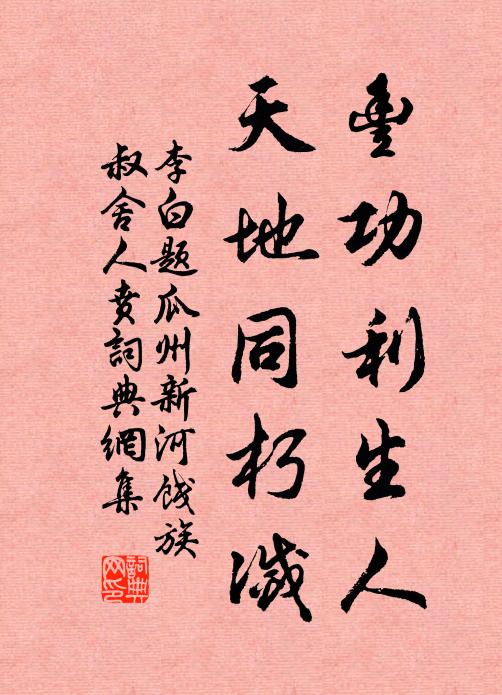 豐功利生人
天地同朽滅
李白題瓜州新河餞族
叔舍人賁詞典網集
詞典
网印